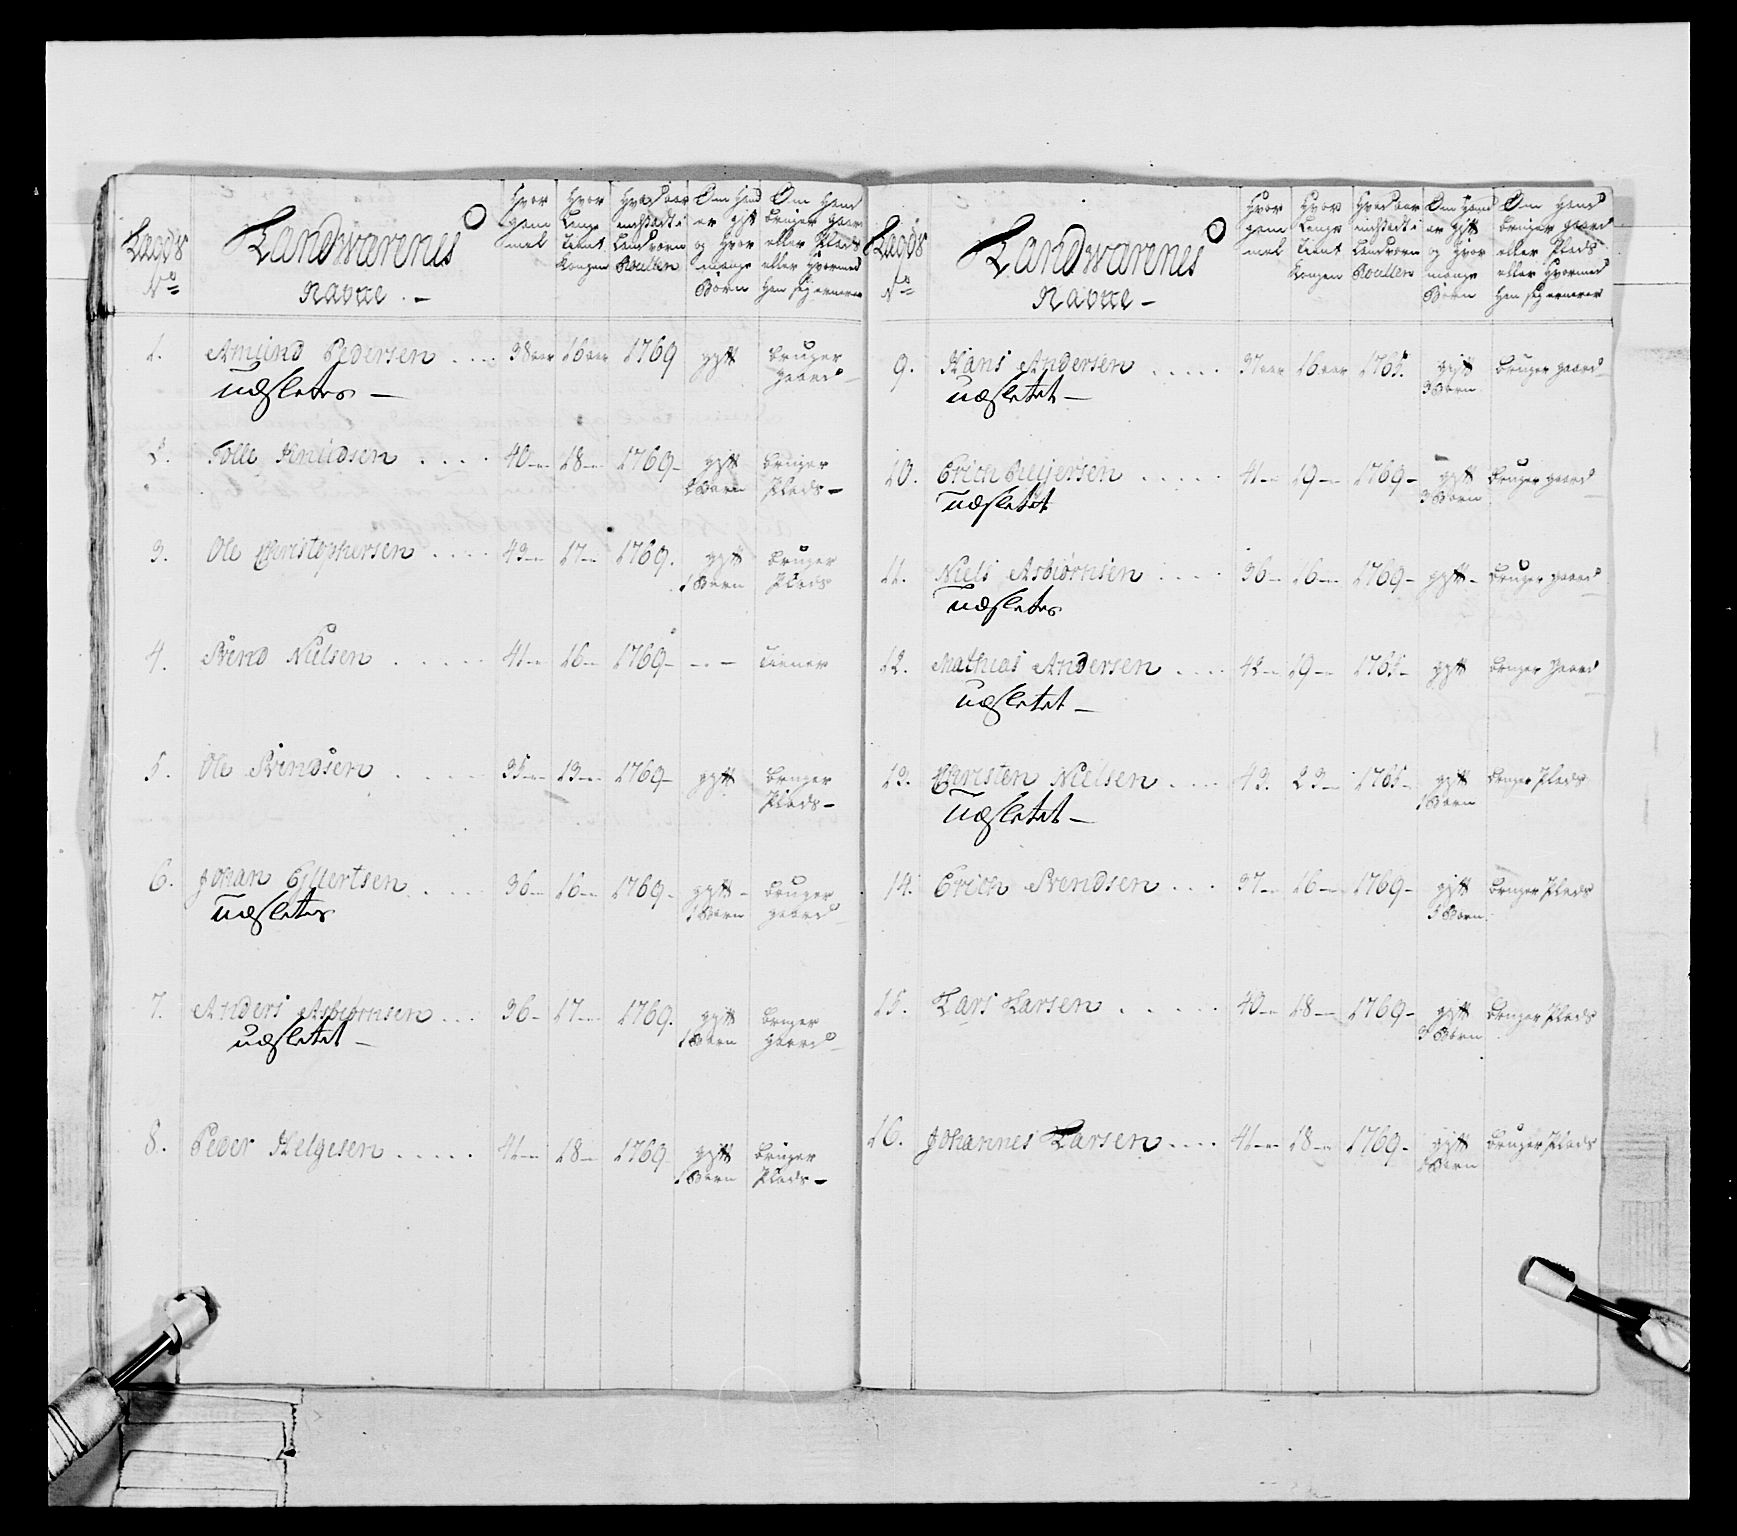 Laugs No
Landwærnes Navne. -
Hvor gam mel
Hvor Lenge Tient Kongen
Hvad aar indsadt i Landværn Roullen
Om Hand er gift og Hvor mange Børn
Om Hand bruger gaard eller Plads eller Hvormed Han sig ernærer
1. Amund Pedersen .... 38 aar 16 aar 1769 gift bruger gaard
udslettes -
2. Tolle Knudsen .... 40 18 1769 gift 2 Børn bruger Plads -
3. Ole Christophersen .... 43 17 1769. gift 1 Barn bruger Plads
4. Svend Nielsen ..... 41 16 1769 - - - tiener
5. Ole Svendsen .... 35 13 1769 gift bruger Plads -
6. Johan Ejlertsen .... 36 16 1769 gift - 1 Barn bruger gaard
udslettes
7. Anders Asbiørnsen ... 36 17 1769. gift 1 Barn bruger gaard
udslettet -
8. Peder Helgesen ..... 41 18 1769 gift 1 Barn bruger Plads -
Laugs No
Landwærnes Navne -
Hvor gam mel
Hvor Lenge Tient Kongen
Hvad aar indsadt i Landværn Roullen
Om Hand er gift og Hvor mange Børn
Om Hand bruger gaard eller Plads eller Hvormed Han sig ernærer
9. Hans Andersen ..... 37 aar 16 aar 1765. gift 3 Børn bruger gaard
udslettet -
10. Erich ..... 41 19 1769 - gift 3 Børn bruger gaard
udslettet
11. Niels Asbiørnsen .... 36 16 1769 - gift - bruger gaard
udslettes
12. Mathias Andersen .... 42 19 1765 - gift bruger Gaard
udslettet -
13. Christen Nielsen .... 43. 23 1765 - gift 1 Barn bruger Plads
udslettet -
14. Erich Svendsen ... 37 16 1769 - gift 3 Børn bruger Plads
15. Lars Larsen ..... 40 18 1769 - gift 3 Børn bruger Plads
16. Johannes Larsen .... 41 18 1769 - gift 1 Barn bruger Plads